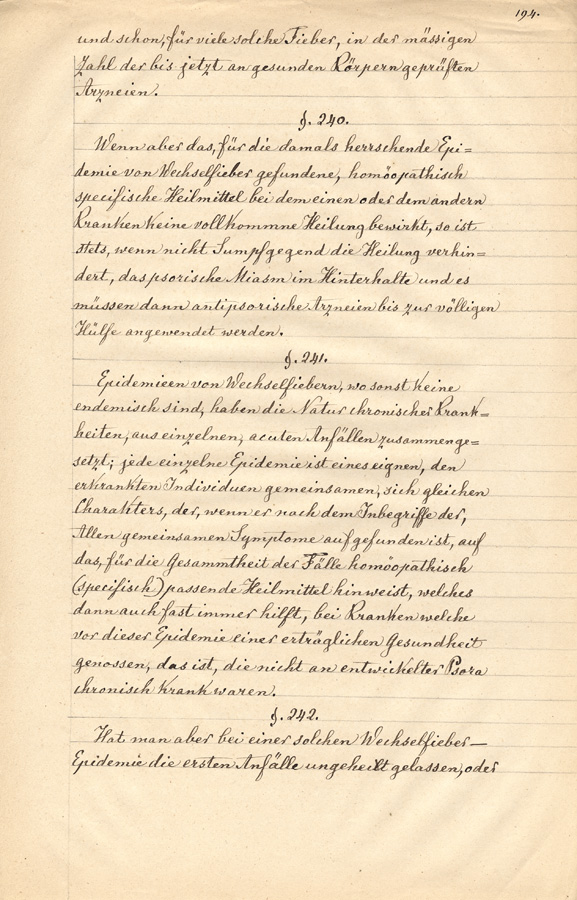 194.
und schon, für viele solche Fieber, in der mässigen
Zahl der bis jetzt an gesunden Körpern geprüften
Arzneien.
§. 240.
Wenn aber das, für die damals herrschende Epi=
demie von Wechselfieber gefundene, homöopathisch
specifische Heilmittel bei dem einen oder dem andern
Kranken keine vollkommne Heilung bewirkt, so ist
stets, wenn nicht Sumpfgegend die Heilung verhin=
dert, das psorische Miasm im Hinterhalte und es
müssen dann antipsorische Arzneien bis zur völligen
Hülfe angewendet werden.
§. 241.
Epidemieen von Wechselfiebern, wo sonst keine
endemisch sind, haben die Natur chronischer Krank=
heiten, aus einzelnen, acuten Anfällen zusammenge=
setzt; jede einzelne Epidemie ist eines eignen, den
erkrankten Individuen gemeinsamen, sich gleichen
Charakters, der, wenn er nach dem Inbegriffe der,
Allen gemeinsamen Symptome aufgefunden ist, auf
das, für die Gesammtheit der Fälle homöopathisch
(specifisch) passende Heilmittel hinweist, welches
dann auch fast immer hilft, bei Kranken welche
vor dieser Epidemie einer erträglichen Gesundheit
genossen, das ist, die nicht an entwickelter Psora
chronisch krank waren.
§. 242.
Hat man aber bei einer solchen Wechselfieber—
Epidemie die ersten Anfälle ungeheilt gelassen, oder